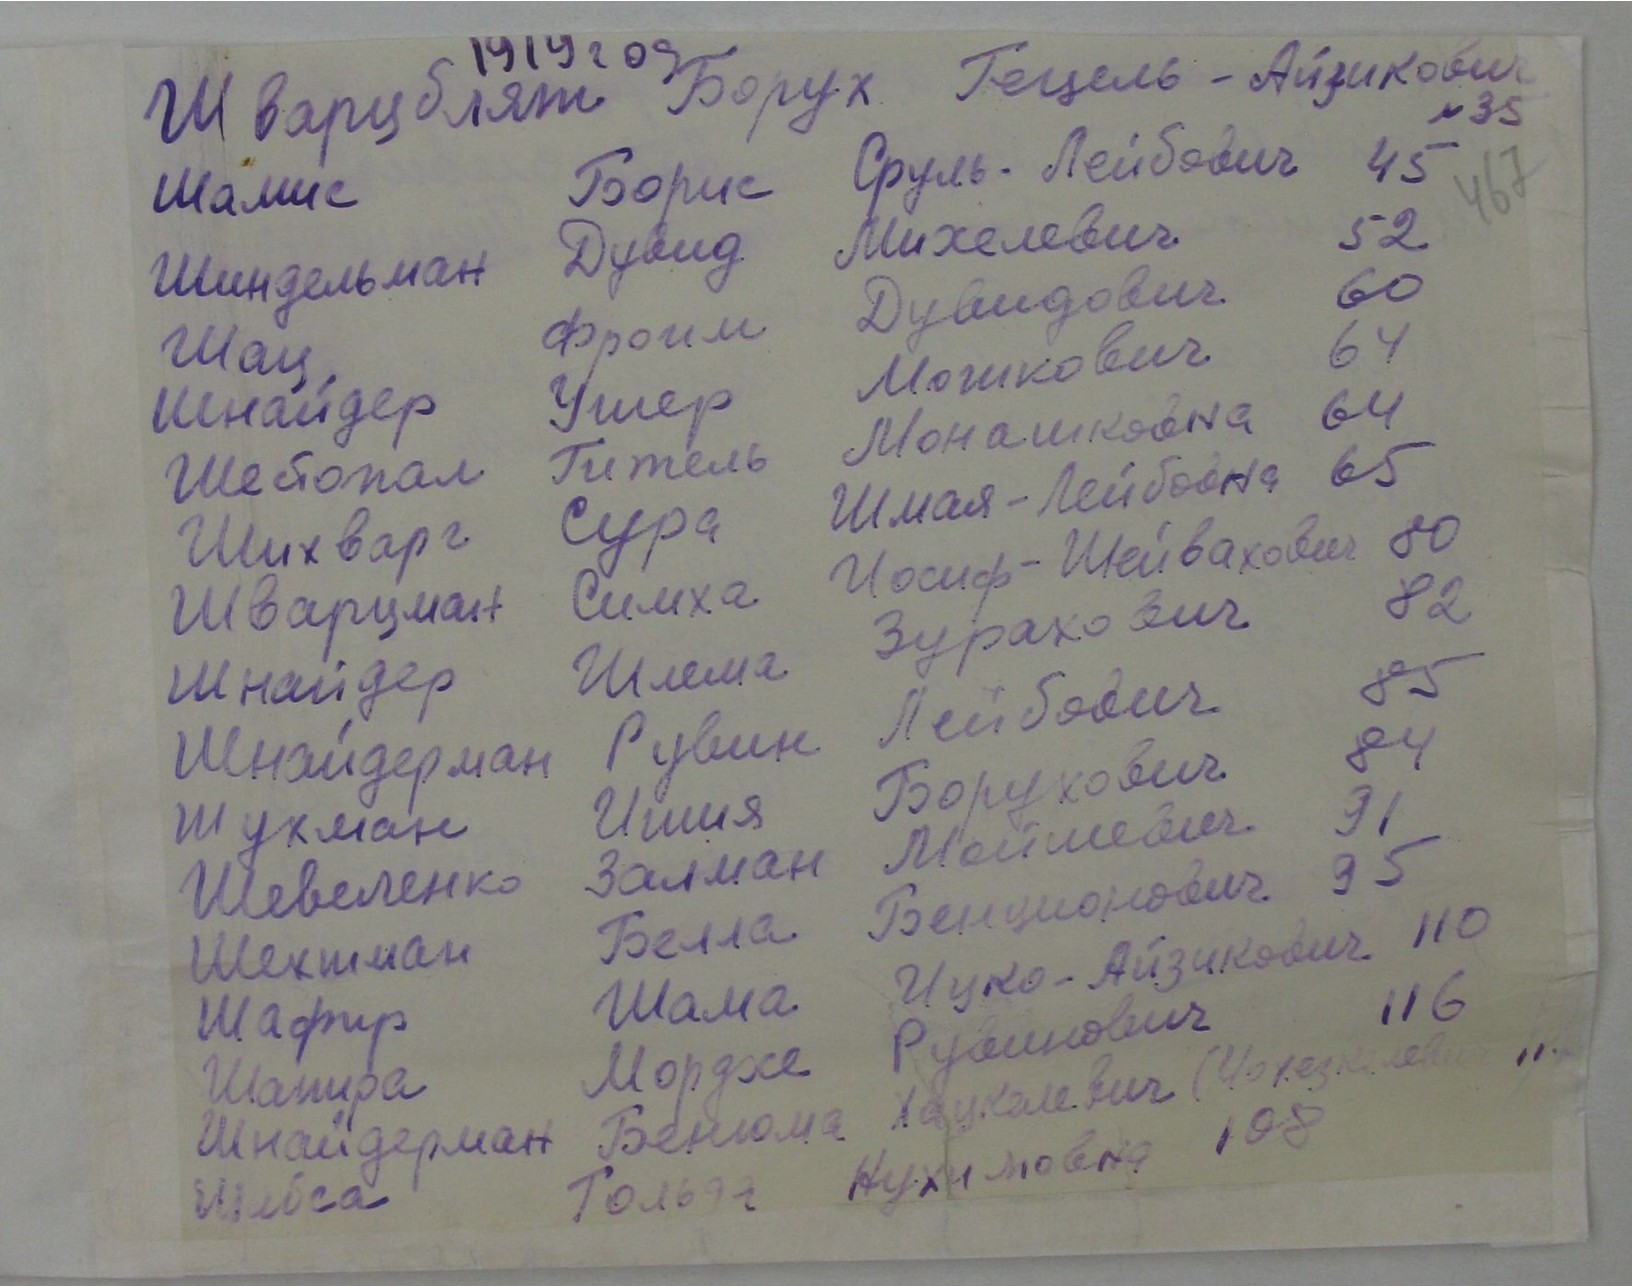 1919 год
Шварцблят Борух Гецель-Айзикович
№35
Шамис Борис Сруль-Лейбович 45
467
Шиндельман Дувид Михелевич 52
Шац Фроим Дувидович 60
Шнайдер Ушер Мошкович 64
Шестопал Гитель Монашковна 64
Шихварг Сура Шмая-Лейбовна 65
Шварцман Симха Иосиф-Шейвахович 80
Шнайдер Шлема Зурахович 82
Шнайдерман Рувин Лейбович 85
Шухман Ишия Борухович 84
Шевеленко Залман Мойшевич 91
Шехтман Белла Бенционович 95
Шафир Шама Ицко-Айзикович 110
Шапира Мордхе Рувинович 116
Шнайдерман Бенюма Хацкелевич
Гольда Нухимовна 108